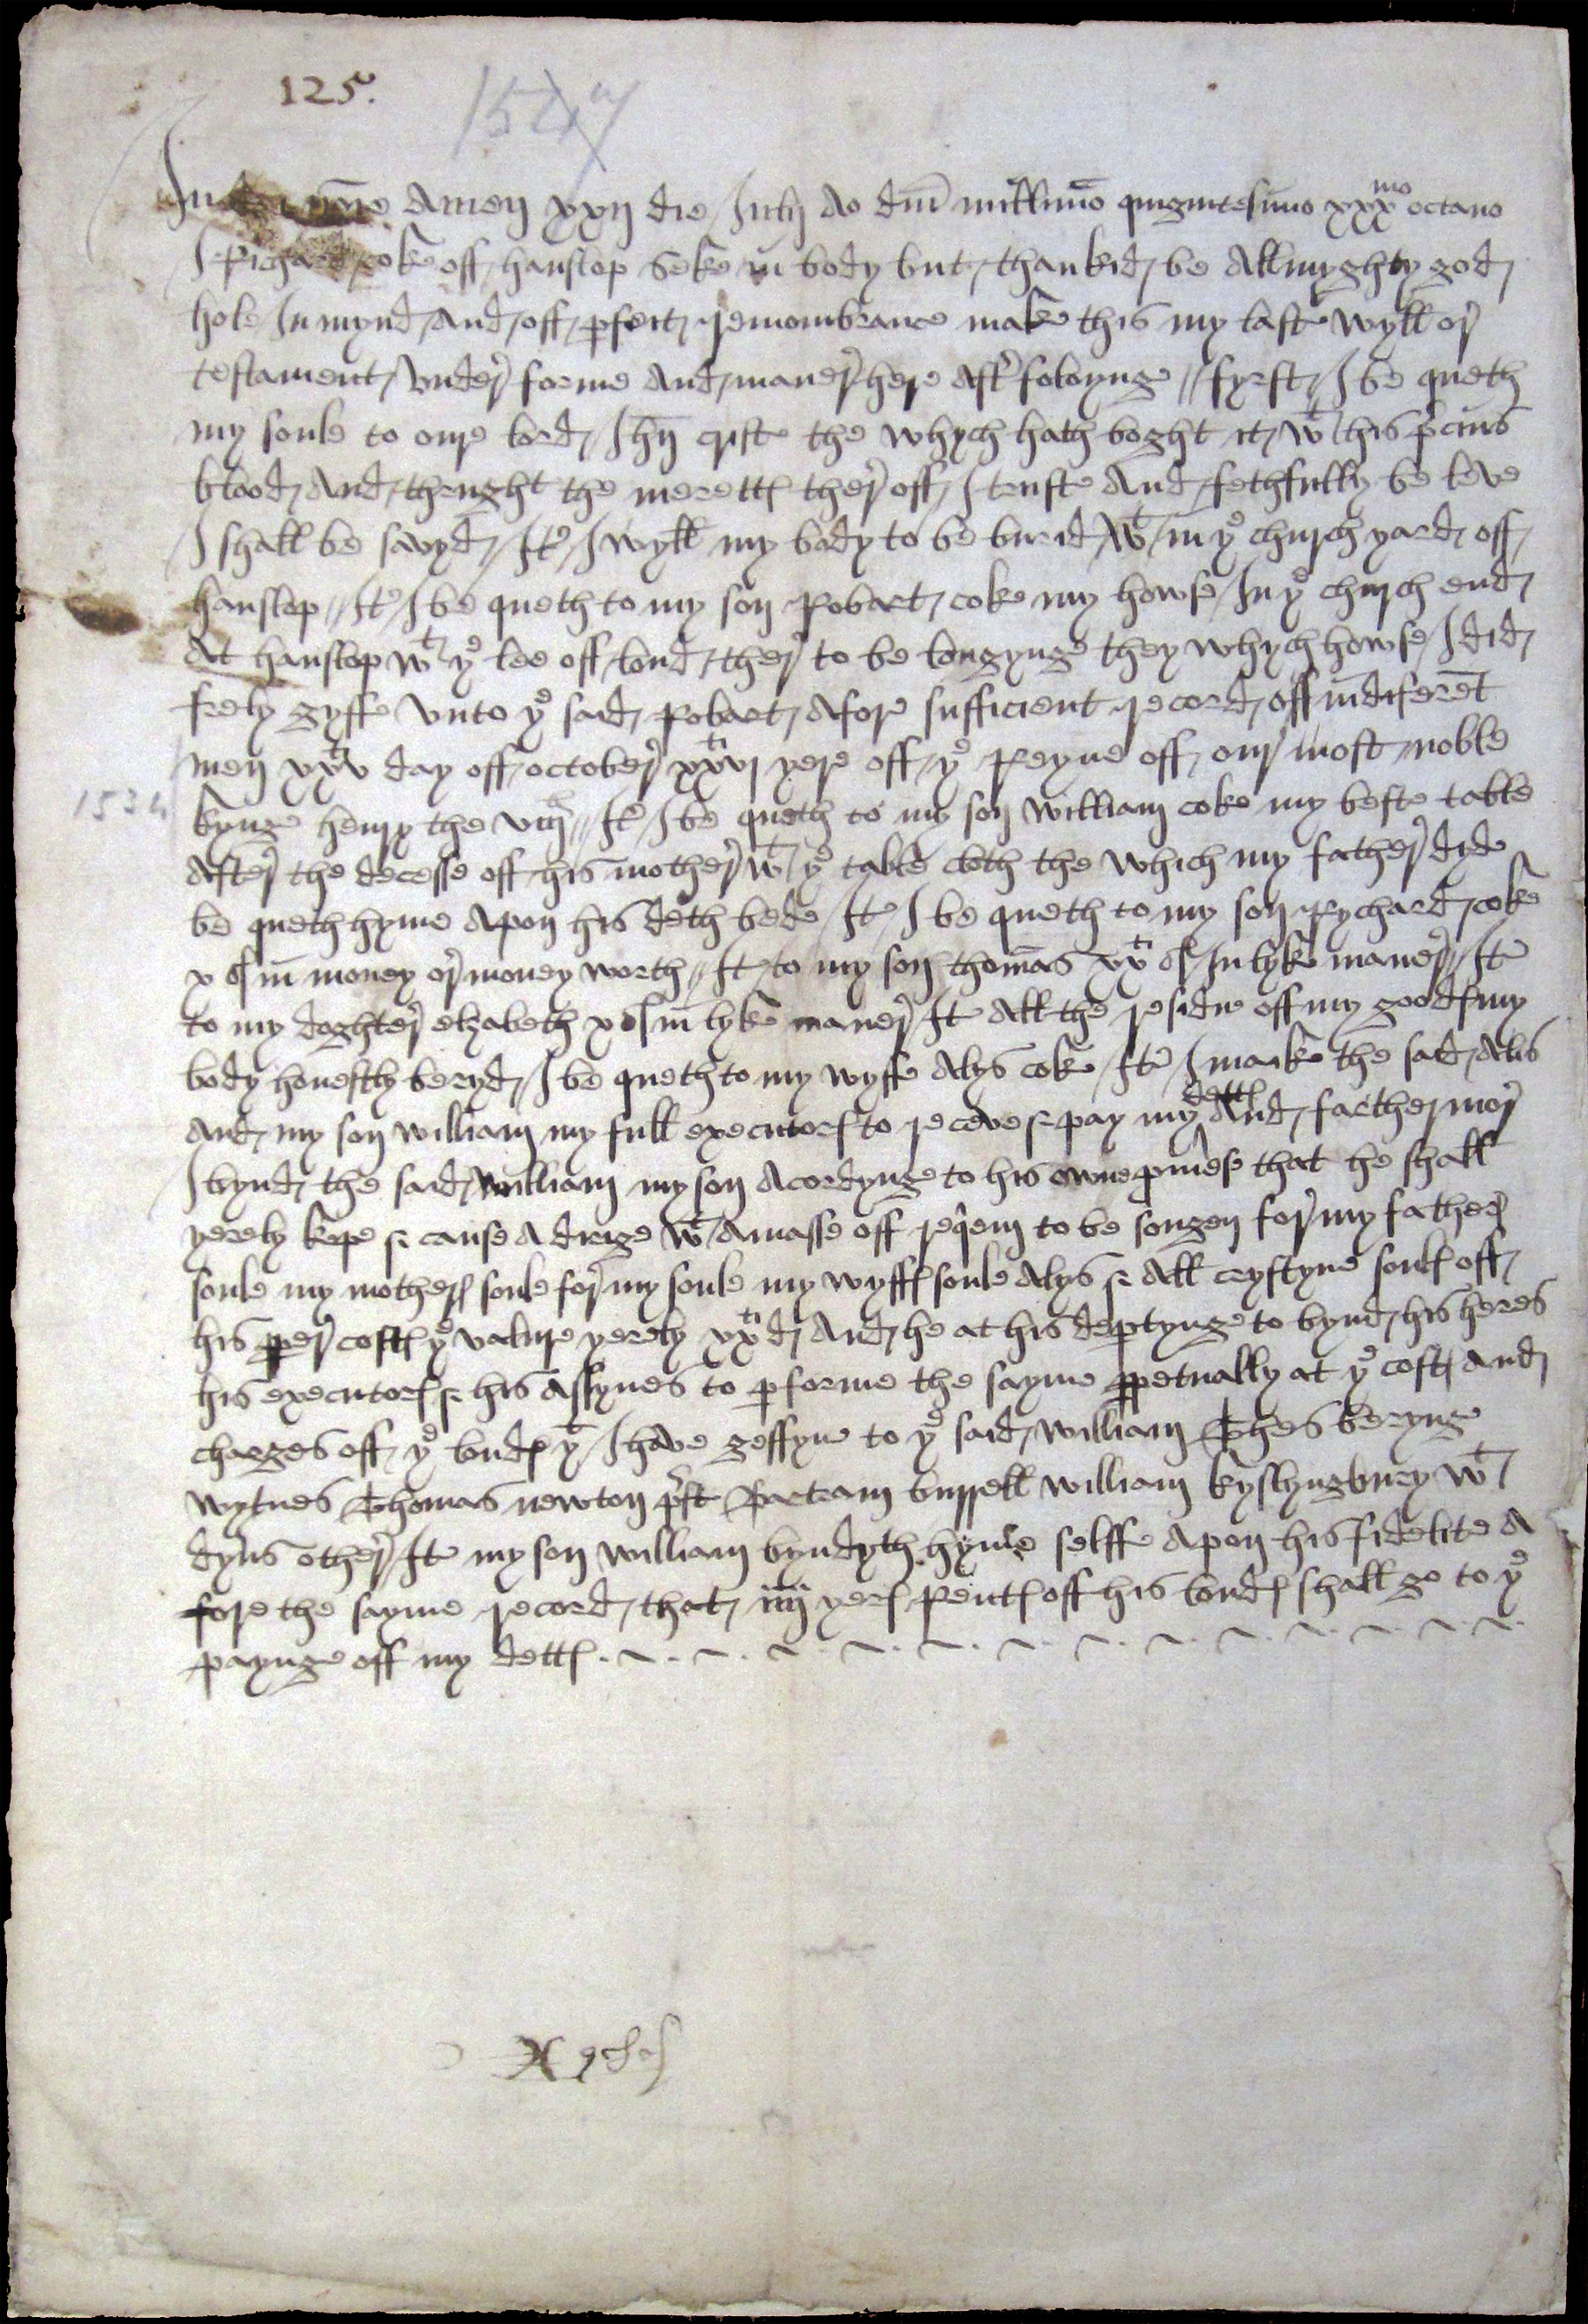 125.
In dei noie Amen xxij die July Ao dni millimo quigintesimo xxx mo octavo
I Richard coke off hanslop Seke in body but thankid be Allmyghty god
hole In mynd And off pfect remembrance make this my laste wyll or
testament under forme And maner here Aft folowynge // fyrst I be queth
my soule to oure lord Jhu criste the whych hath boght it wt his pcius
blood And thrught the merettes ther off I truste And fethfully be leve
I shall be savyd / It I wyll my body to be burid wt in ye church yard off
hanslop // It I be queth to my son Robart coke my howse In ye church end
At hanslop wt ye lee off lond ther to be longynge they whych howse I did
frely gyffe Unto ye said Robart Afore sufficient record off indiferet
men xxv ti day off october xxvi ti yere off ye Reyne off our most noble
1534
kynge henry the viij // It I be queth to my son william coke my beste table
After the decesse off his mother wt ye table cloth the which my father dyde
be queth hyme Apon his deth bede / It I be queth to my son Rychard coke
x s in money or money worth // It to my son thomas xx ti s In lyke maner // It
to my doghter elzabeth x s in lyke maner It All the residue off my goodes my
body honestly beryd I be queth to my wyffe Alys coke / It I make the sad Alis
And my son william my full executors to receve & pay my dettes And farther mor
I bynd the said william my son Acordynge to his owne pmese that he shall
yerely kepe & cause A dirige wt A masse off reqem to be songen for my father
soule my mothers soule for my soule my wyffes soule Alys & All crystyne soules off
his pper costes ye valure yerely xx ti d And he at his deptynge to bynd his heres
his executors & his Assynes to pforme the sayme ppetually at ye cost And
charges off ye londes yt I have geffyne to ye said william Thes berynge
wytnes Thomas newton prst Bartram burrell william kyslyngbury wt
dyvs other / It my son william byndyth hyme selffe Apon his fidelite A
fore the sayme record that iiij yers Rentes off his londes shall go to ye
paynge off my dettes